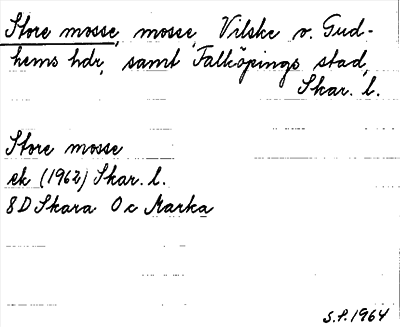 Store mosse, mosse, Vilske o. Gud-
hems hdr, samt Falköpings stad,
Skar. l.
Store mosse
ek (1962) Skar. l.
8D Skara 0c Marka
S.P. 1964